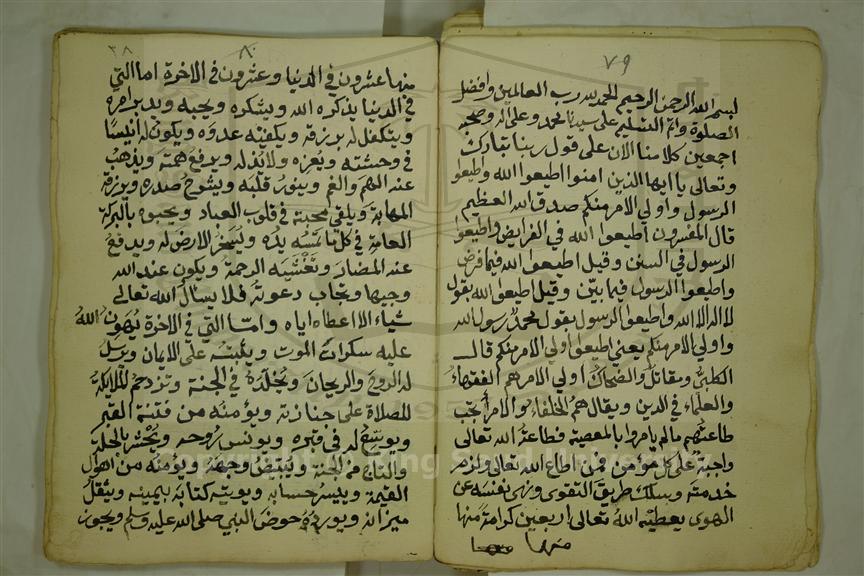 ٧٩
لبسم الله الرحمن الرحيم الحمد لله رب العالمين وافضل
الصلوة واتم التسليم على سيدنا محمد وعلى اله وصحبه
اجمعين كلامنا الان على قول ربنا تبارك
وتعالى يا ايها الذين امنوا اطيعوا الله واطيعوا
الرسول واولي الامر منكم صدق الله العظيم
قال المفسرون اطيعوا الله في الفرايض واطيعوا
الرسول في السنن وقيل اطيعوا الله فيما فرض
واطيعوا الرسول فيما بيّن وقيل اطيعوا الله بقول
لا اله الا الله واطيعوا الرسول بقول محمد رسول الله
واولي الامر منكم يعني اطيعوا اولي الامر منكم قال
الكلبي ومقاتل والضحاك اولي الامر هم الفقهاء
والعلماء في الدين ويقال هم الخلفاء والامراء تجب
طاعتهم مالم يامروا بالمعصية فطاعة الله تعالى
واجبة على كل مؤمن فمن اطاع الله تعالى ولزم
خدمته وسلك طريق التقوى ونهى نفسه عن
الهوى يعطيه الله تعالى اربعين كرامة منها
منها
٨٠
٣٨
منها عشرون في الدنيا وعشرون في الاخرة اما التي
في الدنيا يذكره الله ويشكره ويحبه ويدبر امره
ويتكفل له برزقه ويكفيه عدوه ويكون له انيسا
في وحشته ويعزه ولا يذله ويرفع همته ويذهب
عنه الهم والغم وينور قلبه ويشرح صدره ويرزقه
المهابة ويلقي محبته في قلوب العباد ويحبوه بالبركة
العامة في كل ما تمسه يده ويسخر الارض له ويدفع
عنه المضار وتغشيه الرحمة ويكون عند الله
وجيها وتجاب دعوته فلا يسال الله تعالى
شياء الا اعطاه اياه وامّا التي في الاخرة يهون الله
عليه سكرات الموت ويثبته على الايمان ويرسل
له الروح والريحان ويخلده في الجنة وتزدحم الملايكة
للصلاة على جنازته ويؤمنه من فتنة القبر
ويوسّع له في قبره ويونس روحه ويحشر بالحلة
والتاج من الجنة ويبيض وجهه ويؤمنه من اهوال
القيمة وييسر حسابه ويوتيه كتابه بيمينه ويثقل
ميزانه ويورده حوض النبي صلى الله عليه وسلم ويجوز
Copyright © King Saud University